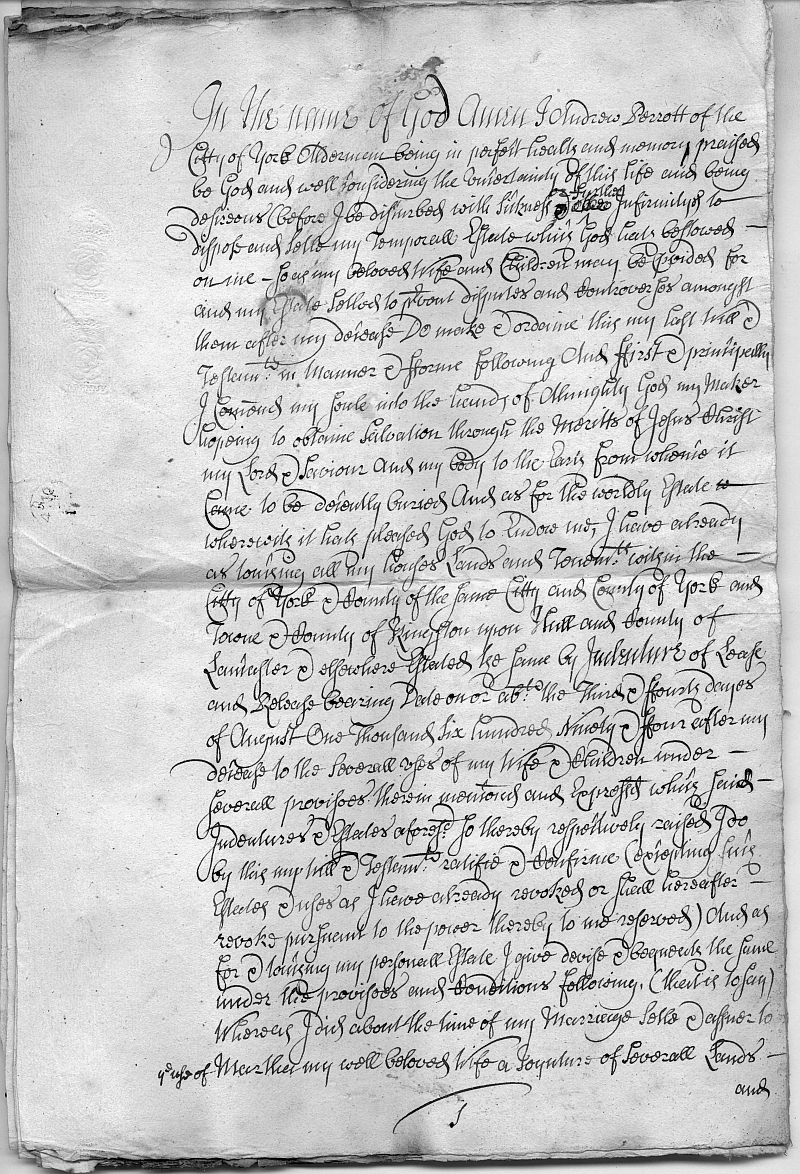 In the name of God Amen I Andrew Perrott of the
Citty of York Alderman being in perfect health and memory praised
be God and well Considering the Uncertainty of this life and being
desireous (before I be disturbed with Sickness or further Infirmityes to
dispose and settle my Temporall Estate which God hath bestowed
on me so as my beloved Wife and Children may be pvided for
and my Estate setled to pvent disputes and Controversies amongst
them after my decease Do make & ordaine this my last will &
Testamt in Manner & fforme following And ffirst & principally
I Comend my soule into the hands of Almighty God my Maker
hopeing to obtaine Salvation through the Meritts of Jesus Christ
my Lord & Saviour And my body to the Earth from whence it
Came to be decently buried And as for the worldly Estate
wherewith it hath pleased God to Endow me, I have already
as touching all my houses Lands and Tenemts within the
Citty of York & County of the same Citty and County of York and
Towne & County of Kingston upon Hull and County of
Lancaster & elsewhere Estated the same by Indenture of Lease
and Release bearing Date on or abt the Third & ffourth dayes
of August One Thousand Six hundred Ninety & ffour after my
decease to the Severall uses of my Wife & Children under
severall provisoes therein menconed and Expressed which said
Indentures & Estates aforesd so thereby respectively raised I do
by this my will & Testamt ratifie & Confirme (excepting such
Estates & uses as I have already revoked or shall hereafter
revoke pursuant to the power thereby to me reserved) And as
for & touching my personall Estate I give devise & bequeath the same
under the provisoes and Conditions following, (that is to say)
Whereas I did about the time of my Marriage settle & assure to
ye use of Martha my well beloved Wife a Joynture of Severall Lands
and
1